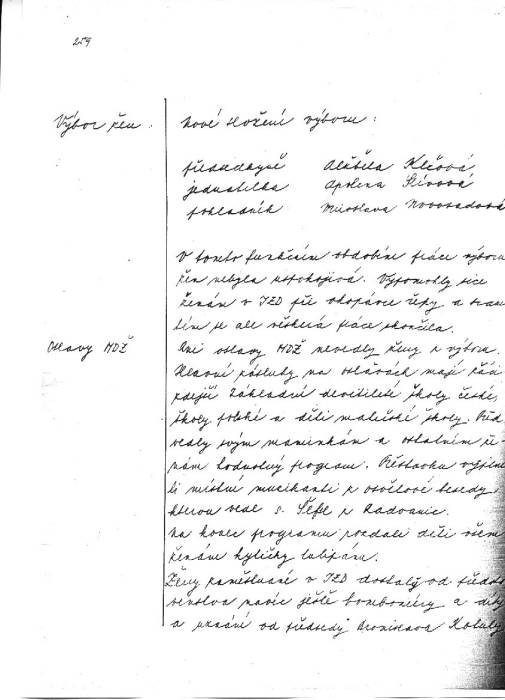 259
Výbor žen :
Nové složení výboru :
předsedkyně Alžběta Klčová
jednatelka Apolena Sívová
pokladník Miroslava Novosadová
V tomto funkčním období práce výboru
žen nebyla uspokojivá. Vypomohly sice
ženám v JZD při okopávce řepy a tím
se ale veškerá práce skončila.
Oslavy MDŽ
Ani oslavy MDŽ nevedly ženy z výboru.
Hlavní zásluhy na oslavách mají žáci
zdejší Základní devítileté školy české,
školy polské a děti mateřské školy. Před
vedly svým maminkám a ostatním že
nám hodnotný program. Přestávku vyplni
li místní muzikanti z osvětové besedy
kterou vede s. Šefl z Radvanic.
Na konec programu rozdali děti všem
ženám kytičky tulipánů.
Ženy zaměstnané v JZD dostaly od předsta
venstva navíc ještě bomboniéry a díky
a uznání od předsedy Bronislava Kotuly